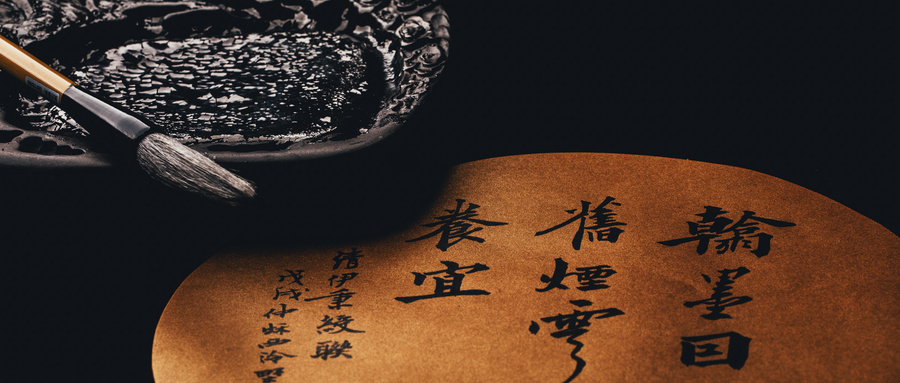 翰墨囙
舊煙雲
養宜
清伊秉綬聯
戊戌仲秋西泠